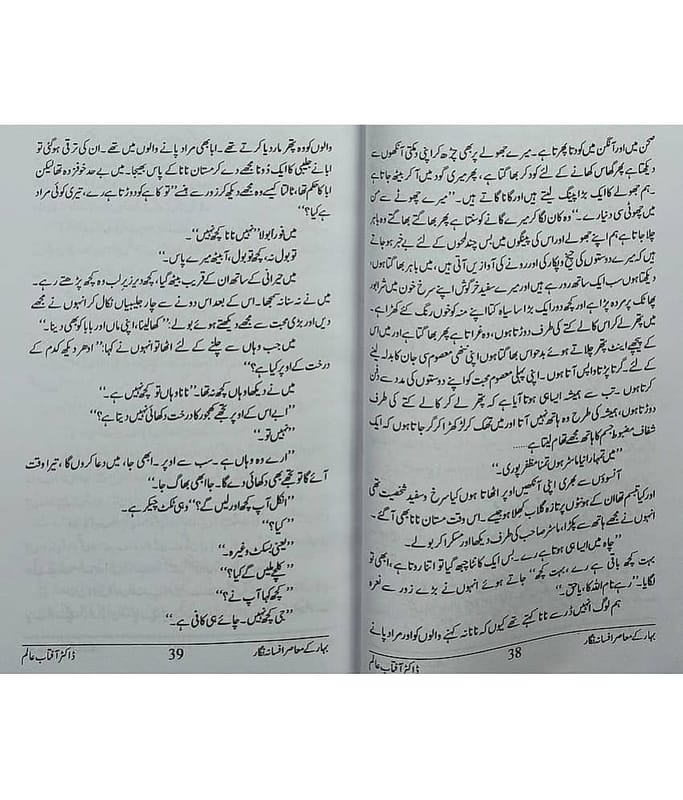 صحن میں اور آنگن میں کودتا پھرتا ہے۔ میرے جھولے پر بھی چڑھ کر اپنی دمکتی آنکھوں سے
دیکھتا ہے پھر گھاس کھانے کے لئے کود کر بھاگتا ہے، پھر میری گود میں آ کر بیٹھ جاتا ہے
ہم جھولے کا ایک بڑا پینگ لیتے ہیں اور گانا گاتے ہیں۔ ”میرے چھونے سے من
میں چھوٹی سی دنیا رے۔“ وہ کان لگا کر میرے گانے کو سنتا ہے پھر بھاگتے بھاگتے وہ باہر
چلا جاتا ہے ہم اپنے جھولے اور اس کی پینگوں میں بس چند لمحوں کے لئے بے خبر ہو جاتے
ہیں کہ میرے دوستوں کی چیخ و پکار کی اور رونے کی آوازیں آتی ہیں، میں باہر بھاگتا ہوں،
دیکھتا ہوں سب ایک ساتھ رو رہے ہیں اور میرے سفید خرگوش اپنے سرخ خون میں شرابور
پھاٹک پر مردہ پڑا ہے اور کچھ دور ایک بڑا سا سیاہ کتا اپنے منہ کو خوں رنگ کئے کھڑا ہے۔
میں پتھر لے کر اس کالے کتے کی طرف دوڑتا ہوں، وہ غراتا ہے پھر بھاگتا ہے اور میں اس
کے پیچھے اینٹ پتھر چلاتے ہوئے بدحواس بھاگتا ہوں اپنی ننھی معصوم سی جان کا بدلہ لینے
کے لئے۔ گرتا پڑتا واپس آتا ہوں۔ اپنی پہلی معصوم محبت کو اپنے دوستوں کی مدد سے دفن
کرتا ہوں۔ تب سے ہمیشہ ایسا ہی ہوتا آیا ہے کہ پتھر لے کر کالے کتے کی طرف
دوڑتا ہوں، ہمیشہ کی طرح وہ ہاتھ نہیں آتا اور میں تھک کر لڑکھڑا کر گر جاتا ہوں کہ ایک
شفاف مضبوط جسم کا ہاتھ مجھے تھام لیتا ہے......
”میں تمہارا نیا ماسٹر ہوں تمنا مظفر پوری۔“
آنسوؤں سے بھری اپنی آنکھیں اوپر اٹھاتا ہوں کیا سرخ و سفید شخصیت تھی
اور کیا تبسم تھا ان کے ہونٹوں پر تازہ گلاب کھلا ہو جیسے۔ اس وقت مستان نانا بھی آ گئے۔
انہوں نے مجھے ہاتھ سے پکڑا، ماسٹر صاحب کی طرف دیکھا اور مسکرا کر بولے۔
”چاہ میں ایسا ہی ہوتا ہے رے۔ بس ایک کانٹا چبھ گیا تو اتنا روتا ہے، ابھی تو
بہت کچھ باقی ہے رے، بہت کچھ“ جاتے ہوئے انہوں نے بڑے زور سے نعرہ
لگایا۔ ”رہے نام اللہ کا، یا حق۔“
ہم لوگ انہیں ڈر سے نانا کہتے تھے کیوں کہ نانا نہ کہنے والوں کو اور مراد پانے
بہار کے معاصر افسانہ نگار 38 ڈاکٹر آفتاب عالم
والوں کو وہ پتھر مار دیا کرتے تھے۔ ابا بھی مراد پانے والوں میں تھے۔ ان کی ترقی ہو گئی تو
ابا نے جلیبی کا ایک دُونا مجھے دے کر مستان نانا کے پاس بھیجا۔ میں بے حد خوفزدہ تھا لیکن
ابا کا حکم تھا، ٹالتا کیسے وہ مجھے دیکھ کر زور سے ہنسے ”تو کا ہے کو دوڑتا ہے رے، تیری کوئی مراد
ہے کیا؟“
میں فوراً بولا ”نہیں نانا کچھ نہیں“۔
تو بول نہ، کچھ تو بول، آ بیٹھ میرے پاس۔“
میں حیرانی کے ساتھ ان کے قریب بیٹھ گیا، کچھ دیر زیر لب وہ کچھ پڑھتے رہے۔
میں نے نہ سنا نہ سمجھا۔ اس کے بعد اس دونے سے چار جلیبیاں نکال کر انہوں نے مجھے
دیں اور بڑی محبت سے مجھے دیکھتے ہوئے بولے: ”کھا لینا، اپنی ماں اور بابا کو بھی دینا۔“
میں جب وہاں سے چلنے کے لئے اٹھا تو انہوں نے کہا: ”ادھر دیکھ کدم کے
درخت کے اوپر کیا ہے؟“
میں نے دیکھا وہاں کچھ نہ تھا۔ ”نانا وہاں تو کچھ نہیں ہے۔“
”ابے اس کے اوپر تجھے کھجور کا درخت دکھائی نہیں دیتا ہے؟“
”نہیں تو۔“
”ارے وہ وہاں ہے۔ سب سے اوپر۔ ابھی جا، میں دعا کروں گا، تیرا وقت
آئے گا تو تجھے بھی دکھائی دے گا۔ جا ابھی بھاگ جا۔“
”انکل آپ کچھ اور لیں گے؟“ وہی ٹکٹ چیکر ہے۔
”کیا؟“
”یعنی بسکٹ وغیرہ۔“
”کلچے ملیں گے کیا؟“
”کچھ کہا آپ نے؟“
”جی کچھ نہیں۔ چائے ہی کافی ہے۔“
بہار کے معاصر افسانہ نگار 39 ڈاکٹر آفتاب عالم